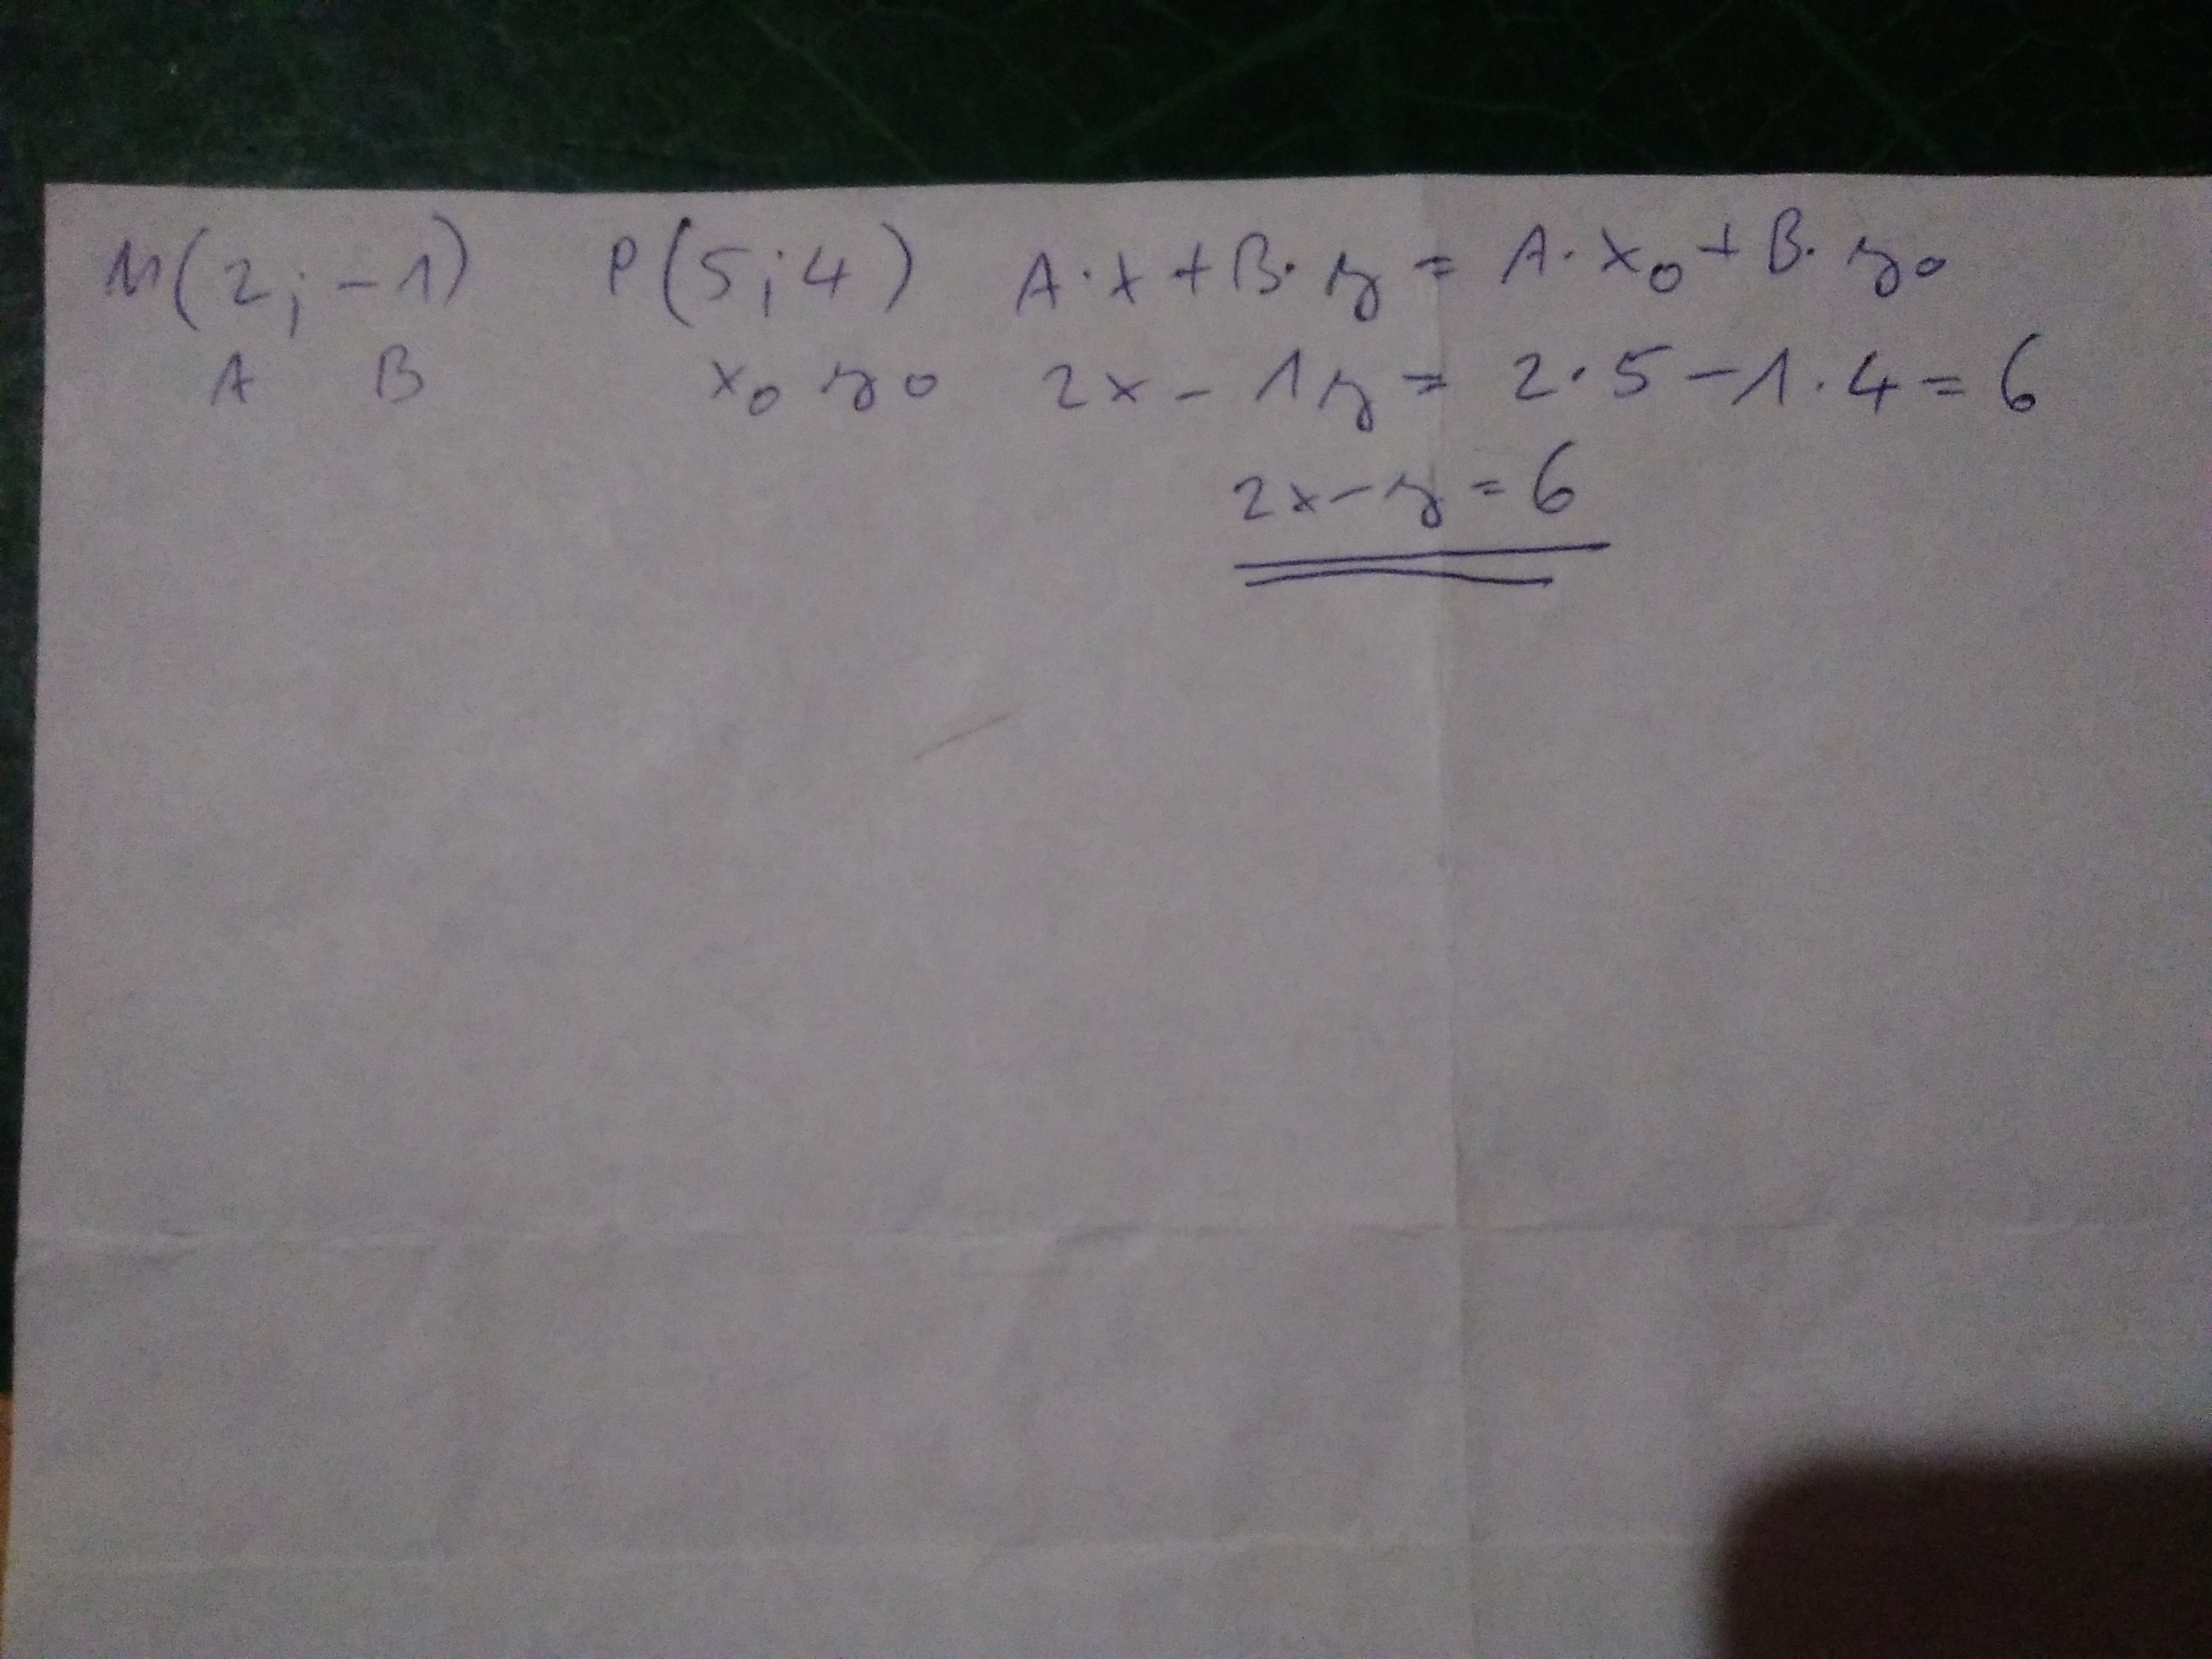 n(2;-1) P(5;4) A·x+B·y=A·x₀+B·y₀
A B x₀ y₀ 2x-1y=2·5-1·4=6
2x-y=6